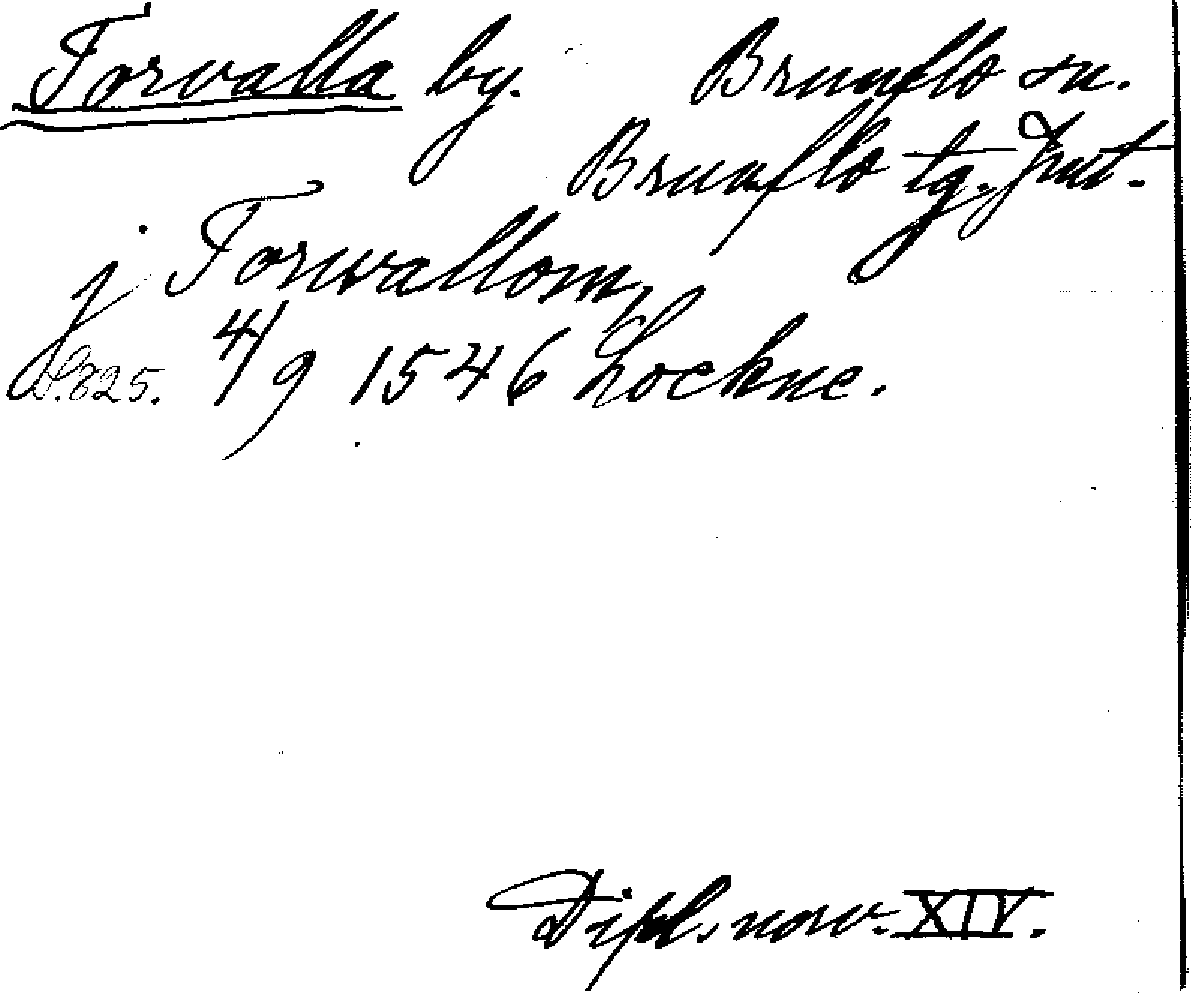 Torvalla by. Brunflo sn.
Brunflo tg. Jmt.
j Torvallom,
S.825. 4/9 1546 Lockne.
Dipl. norv. XIV.